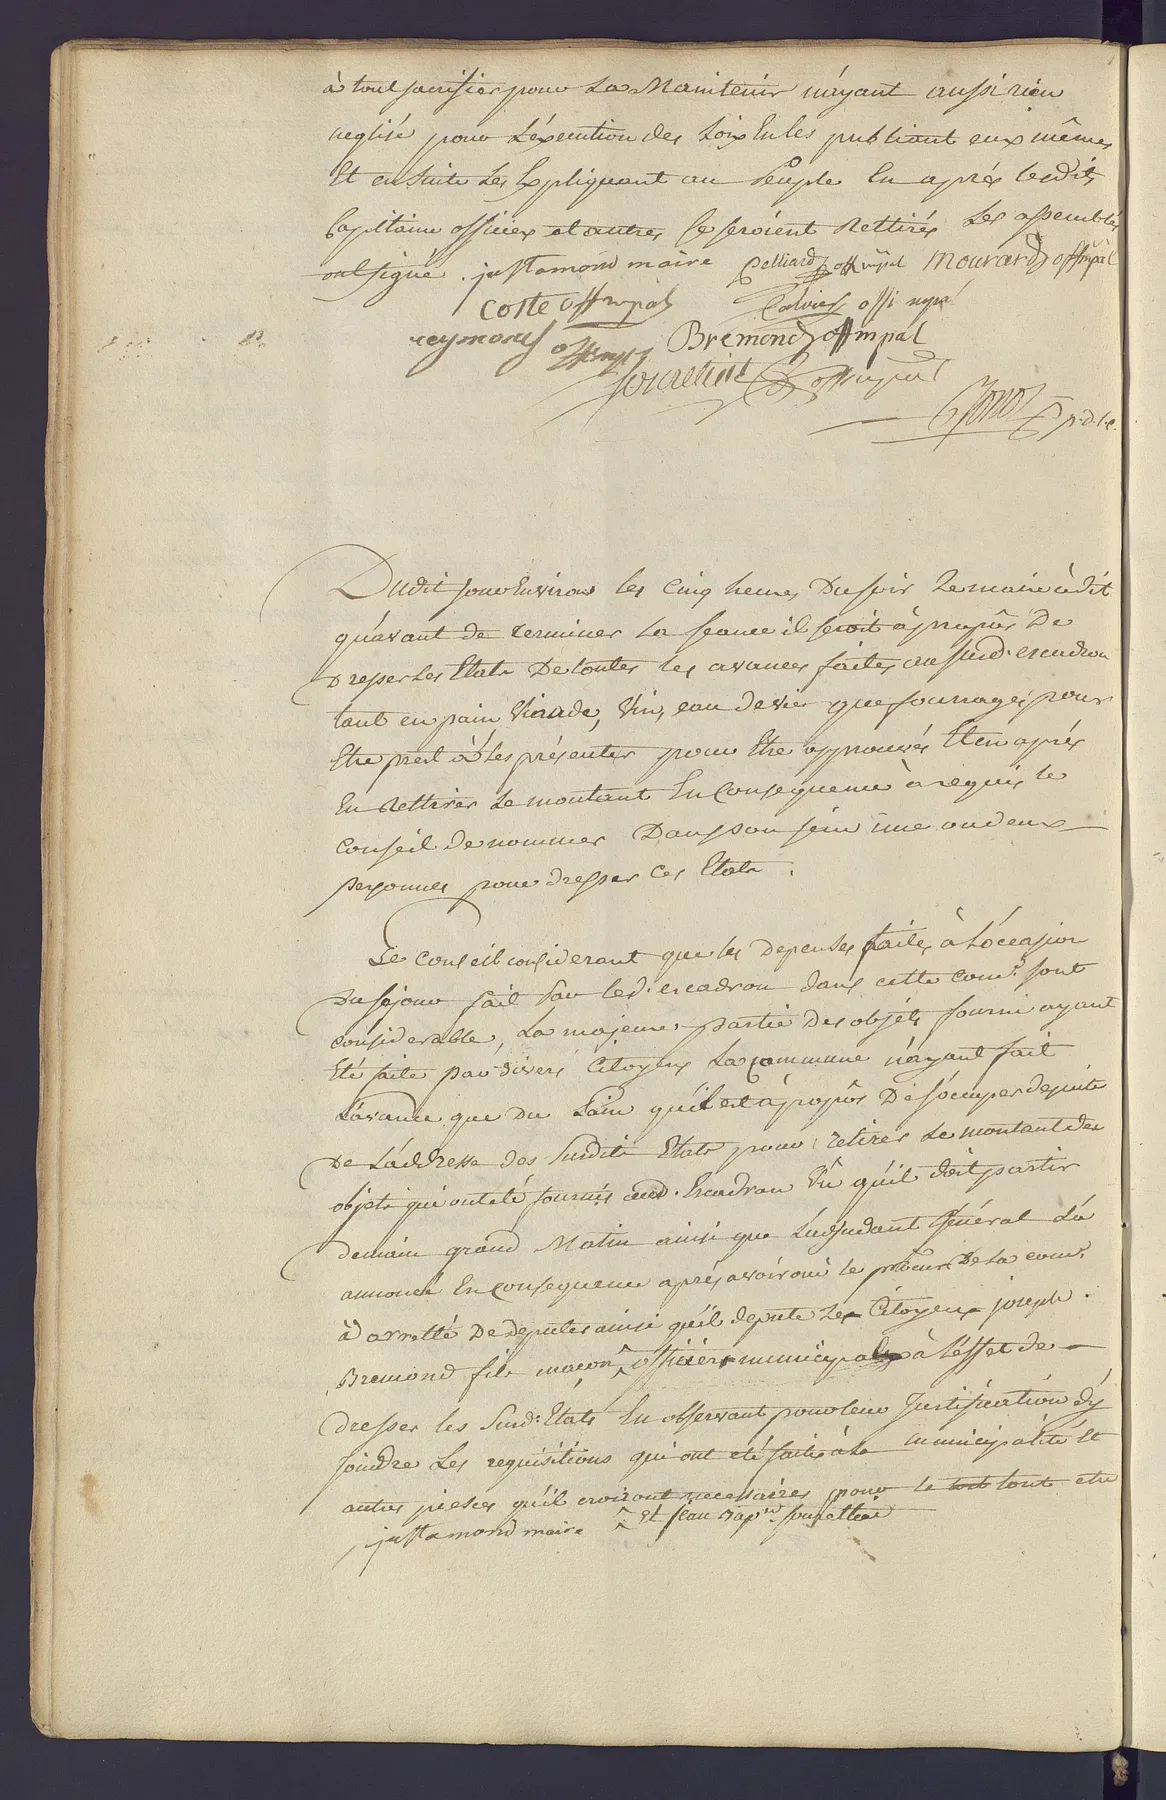 à tout sacrifier pour La Maintenir n'ayant aussi rien
neglisé pour L'éxecution des Loix En les publiant eux mêmes
Et en suite Les Expliquant au Peuple En après lesdits
Capitaine officiers et autres se seroient Rettirés Les assemblés
ont signé. justamond maire Pelliard off. mpal Mourard off mpal
coste off mpal Calvier offi mpal
reymond off mpal Bremond off mpal
Sourelliat off mpal
p.d.l.c.
Dudit jour Environ les cinq heures Du soir Le maire à dit
qu'avant de terminer La seance il seroit à propôs De
Dresser Les Etats De toutes les avances faites au susd. escadron
tant en pain, Viande, Vin, eau de vie que fourrages pour
Etre pret à Les présenter pour Etre approuvés Et en après
En Rettirer Le montant En Consequence à requis le
Conseil De nommer Dans son sein une ou deux
personnes pour dresser Ces Etats.
Le conseil considerant que les Depenses faites à L'occasion
Du sejour fait Par led. escadron dans cette com.e sont
considerable, La majeure partie Des objéts fourni ayant
Eté faite par divers Citoyens La commune n'ayant fait
L'avance que Du Pain qu'il est à propôs De s'ocuper de suite
De L'addresse des Susdits Etats pour retirer Le montant des
objets qui ont eté fournis aud. Escadron Vû qu'il doit partir
demain grand Matin ainsi que L'adjudant Général L'à
annoncé En consequence aprés avoir oui le procur. De La com.e
à d'arretté De deputer ainsi qu'il depute Les Citoyens joseph
Bremond fils maçon ^ officiers municipalx à L'effet de
dresser les Susd. Etats En observant pour leur Justification d'y
joindre Les requisitions qui ont eté faites à La municipalité Et
autres pieces qu'il croiront necessaires pour le tout tout etre
justamond maire ^ Et jean Bap.te sourelliat